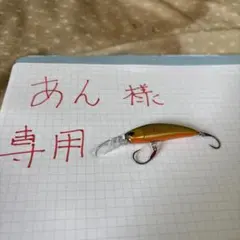 あん 様
専用